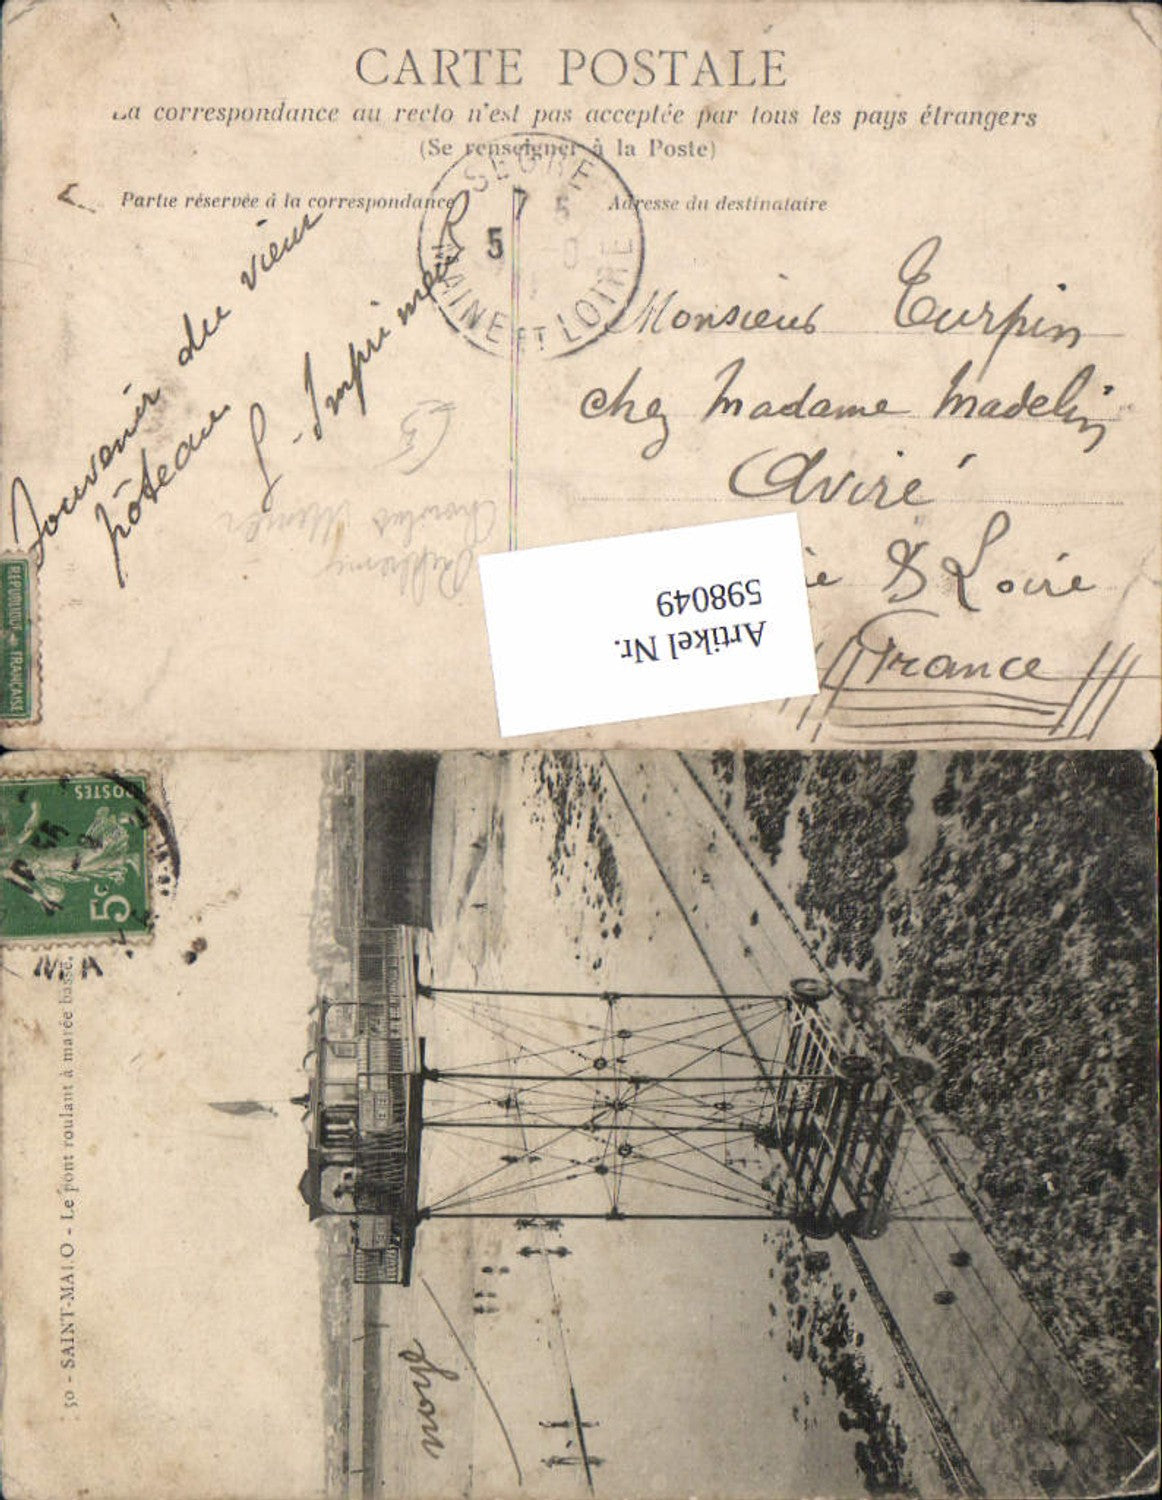 CARTE POSTALE
La correspondance au recto n'est pas acceptée par tous les pays étrangers
(Se renseigner à la Poste)
Partie réservée à la correspondance
Adresse du destinataire
SEGRÉ
5
MAINE ET LOIRE
Souvenir du vieux
poteau
G. Imprimeur
Monsieur Turpin
chez Madame Madelin
Aviré
ie & Loire
France
Artikel Nr.
598049
REPUBLIQUE FRANÇAISE
POSTES
5c
50 - SAINT-MALO - Le pont roulant à marée basse.